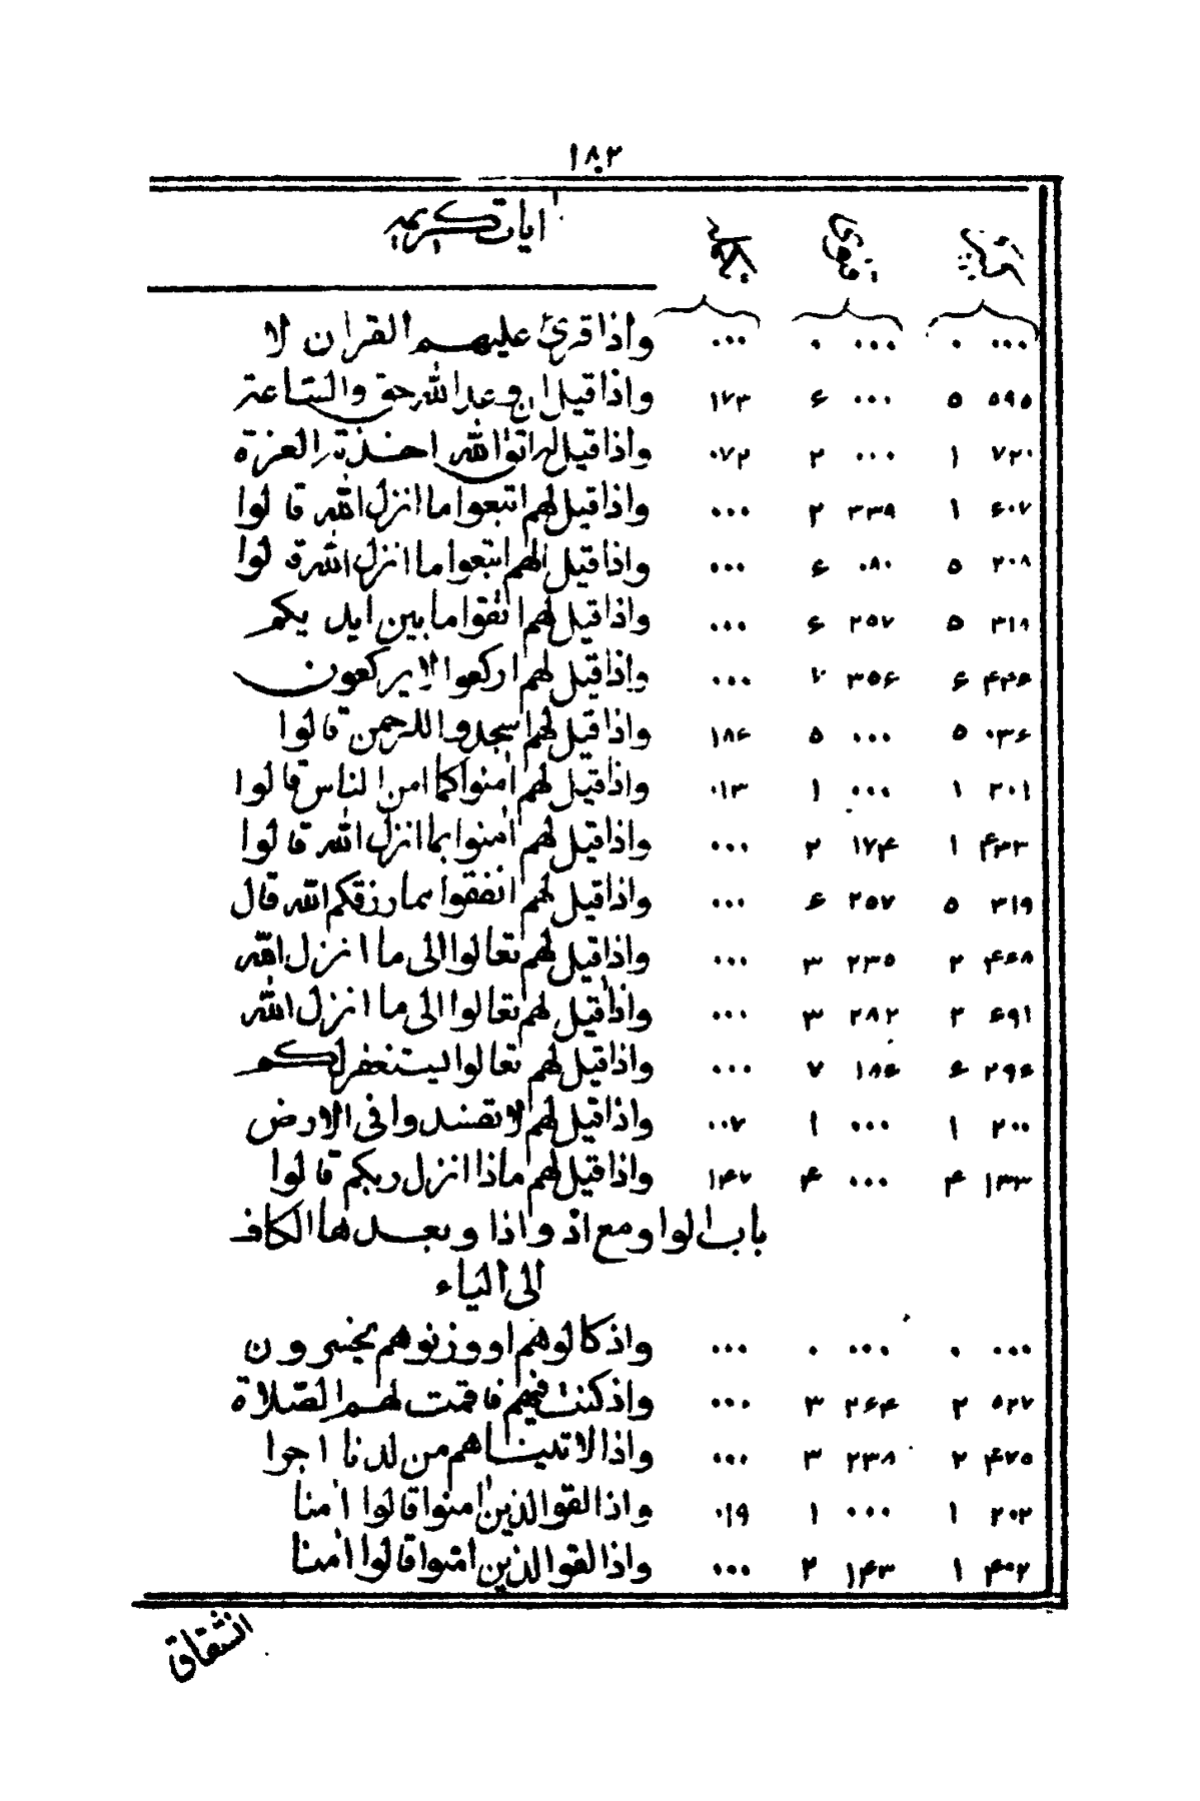 ١٨٢
آيات كريمه
٠٠٠ ٠ ٠٠٠ ٠ ٠٠٠ واذا قرئ عليهم القران لا
٥٩٥ ٥ ٠٠٠ ۶ ١٧٣ واذا قيل ان وعد الله حق والساعة
٧٢٠ ١ ٠٠٠ ٢ ٠٧٢ واذا قيل له اتق الله اخذته العزة
۶٠٧ ١ ٣٣٩ ٢ ٠٠٠ واذا قيل لهم اتبعوا ما انزل الله قالوا
٢٠٨ ٥ ٠٨٠ ۶ ٠٠٠ واذا قيل لهم اتبعوا ما انزل الله قالوا
٣١٨ ٥ ٢٥٧ ۶ ٠٠٠ واذا قيل لهم اتقوا ما بين ايديكم
۶ ٣٥۶ ٧ ٠٠٠ واذا قيل لهم اركعوا لا يركعون
٠٣۶ ٥ ٠٠٠ ٥ ١٨۶ واذا قيل لهم اسجدوا للرحمن قالوا
٢٠١ ١ ٠٠٠ ١ ٠١٣ واذا قيل لهم امنوا كما امن الناس قالوا
۴٣٣ ١ ١٧۴ ٢ ٠٠٠ واذا قيل لهم امنوا بما انزل الله قالوا
٣١٩ ٥ ٢٥٧ ۶ ٠٠٠ واذا قيل لهم انفقوا مما رزقكم الله قال
۴۶٨ ٢ ٢٣٥ ٣ ٠٠٠ واذا قيل لهم تعالوا الى ما انزل الله
۶٩١ ٢ ٢٨٢ ٣ ٠٠٠ واذا قيل لهم تعالوا الى ما انزل الله
٢٩۶ ۶ ١٨۶ ٧ ٠٠٠ واذا قيل لهم تعالوا يستغفر لكم
٢٠٠ ١ ٠٠٠ ١ ٠٠٧ واذا قيل لهم لا تفسدوا فى الارض
١٣٣ ۴ ٠٠٠ ۴ ١۴٧ واذا قيل لهم ماذا انزل ربكم قالوا
باب الواو مع اذ واذا وبعدها الكاف
الى الياء
٠٠٠ ٠ ٠٠٠ ٠ ٠٠٠ واذ كالوهم او وزنوهم يخسرون
٥٢٧ ٢ ٢۶۴ ٣ ٠٠٠ واذ كنت فيهم فاقمت لهم الصّلاة
۴٧٥ ٢ ٢٣٨ ٣ ٠٠٠ واذا لاتيناهم من لدنا اجرا
٢٠٢ ١ ٠٠٠ ١ ٠١٩ واذا لقوا الذين امنوا قالوا امنا
۴٠٢ ١ ١۴٣ ٢ ٠٠٠ واذا لقوا الذين امنوا قالوا امنا
انشقاق